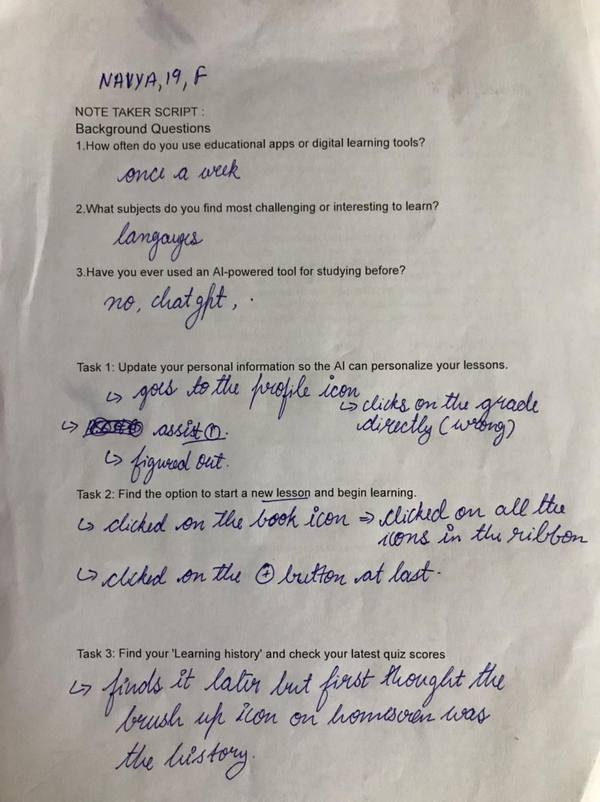 NAVYA, 19, F
NOTE TAKER SCRIPT :
Background Questions
1.How often do you use educational apps or digital learning tools?
once a week
2.What subjects do you find most challenging or interesting to learn?
langauges
3.Have you ever used an AI-powered tool for studying before?
no, chatght, .
Task 1: Update your personal information so the AI can personalize your lessons.
↳ goes to the profile icon
↳ clicks on the grade
directly (wrong)
↳ assist ①.
↳ figured out.
Task 2: Find the option to start a new lesson and begin learning.
↳ clicked on the book icon ⇒ clicked on all the
icons in the ribbon
↳ clicked on the ⊕ button at last.
Task 3: Find your 'Learning history' and check your latest quiz scores
↳ finds it later but first thought the
brush up icon on homescren was
the history.